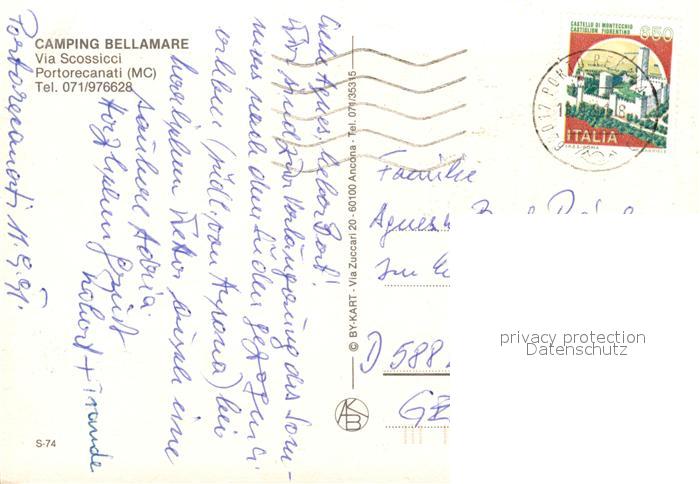 CAMPING BELLAMARE
Via Scossicci
Portorecanati (MC)
Tel. 071/976628
Portorecanati 11.9.91.
Liebe Agnes, lieber
Wir sind zur Verlängerung des Som-
mers nach dem Süden gezogen u.
erleben (südl. von Ancona) bei
herrlichem Wetter
saubere Adria.
Herzlichen Gruß
S-74
© BY-KART - Via Zuccari 20 - 60100 Ancona - Tel. 071/35315
CASTELLO DI MONTECCHIO
CASTIGLION FIORENTINO
650
ITALIA
Familie
Agnes
Im
D 588
privacy protection
Datenschutz